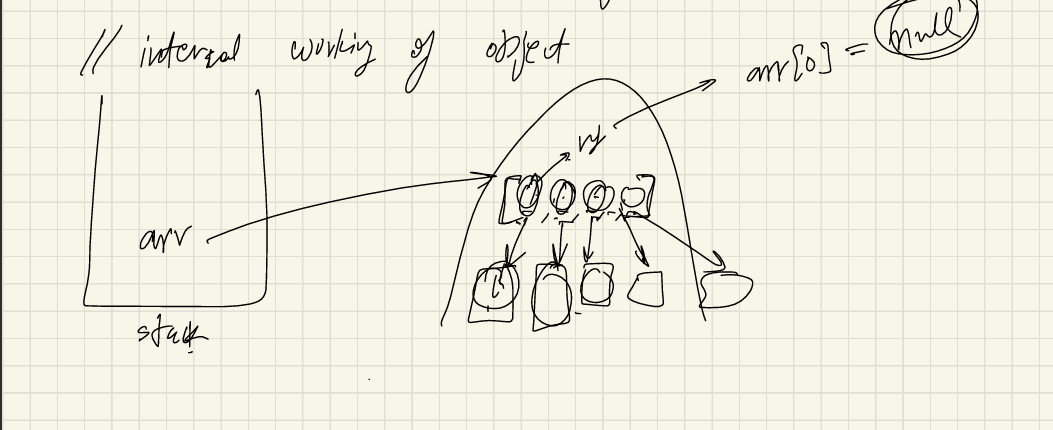 // internal working of object
arr[0] = null
ref
arr
stack